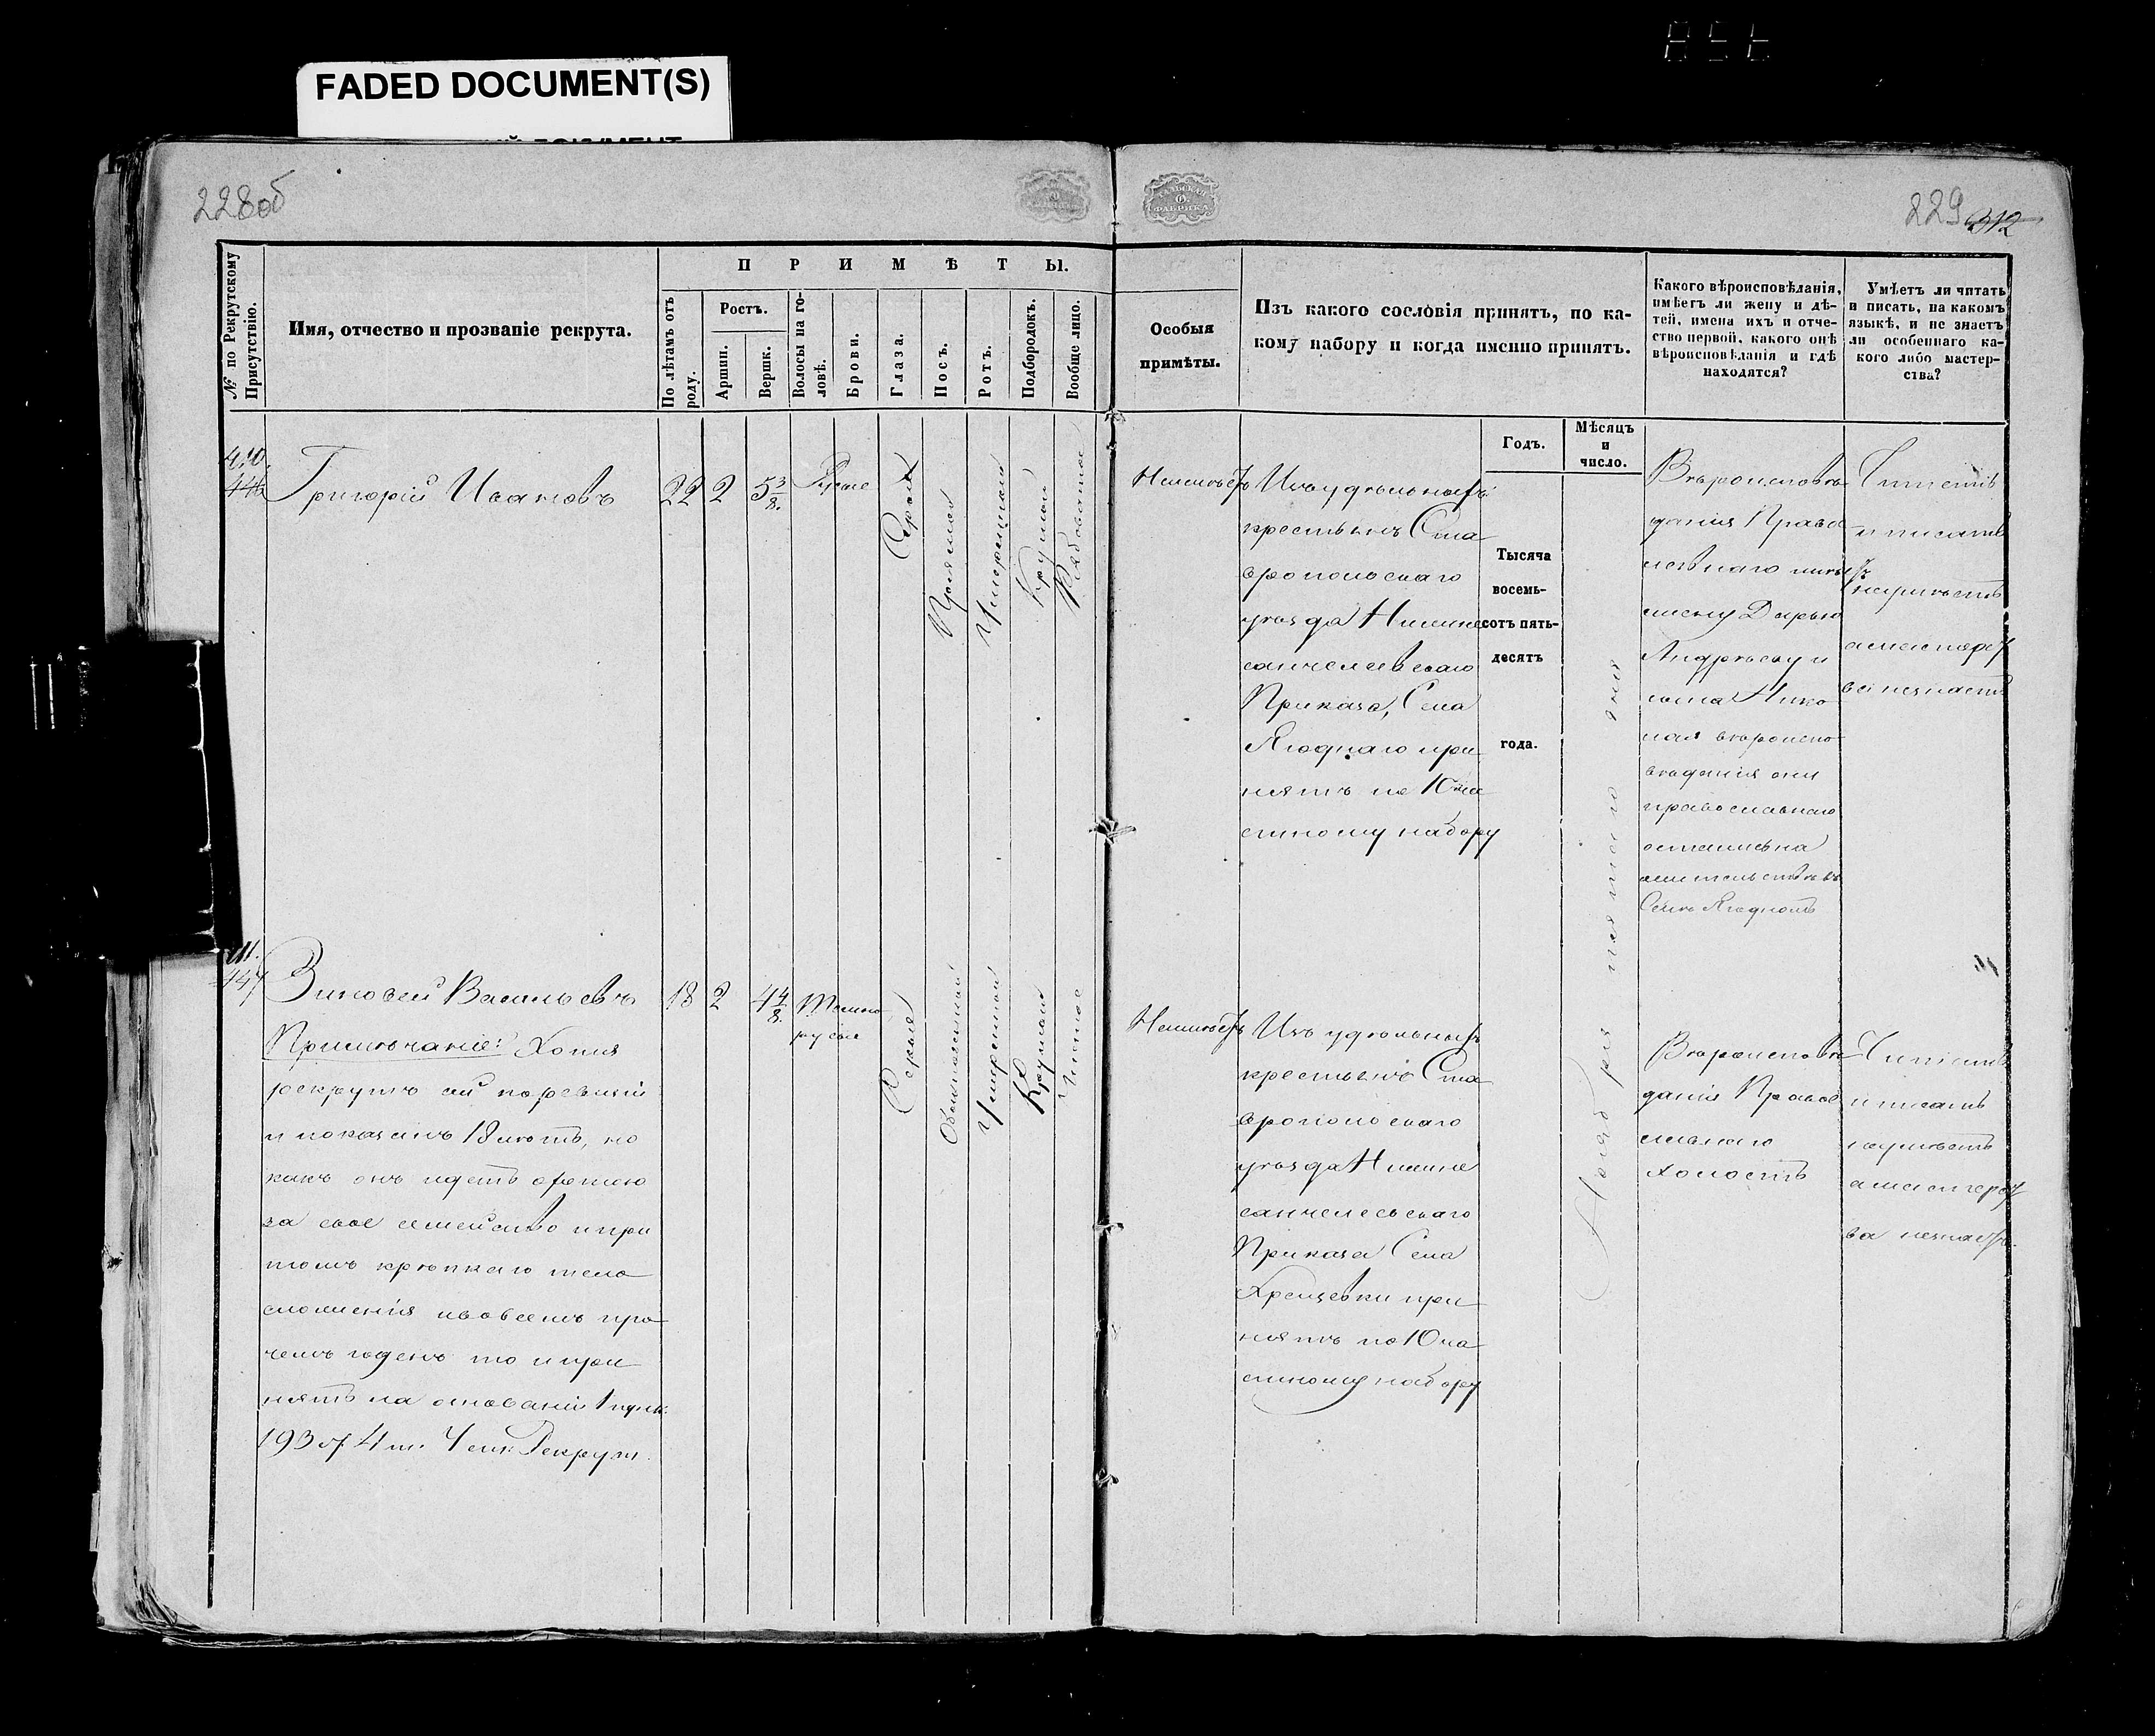 FADED DOCUMENT(S)
228об
229 312
№ по Рекрутскому Присутствію.
Имя, отчество и прозваніе рекрута.
ПРИМѢТЫ.
По лѣтамъ отъ роду.
Ростъ.
Аршин.
Вершк.
Волосы на головѣ.
Брови.
Глаза.
Носъ.
Ротъ.
Подбородокъ.
Вообще лицо.
Особыя
примѣты.
Изъ какого сословія принятъ, по ка-
кому набору и когда именно принятъ.
Годъ.
Мѣсяцъ
и
число.
Какого вѣроисповѣданія,
имѣетъ ли жену и дѣ-
тей, имена ихъ и отче-
ство первой, какого онѣ
вѣроисповѣданія и гдѣ
находятся?
Умѣетъ ли читать
и писать, на какомъ
языкѣ, и не знаетъ
ли особеннаго ка-
кого либо мастер-
ства?
446
Григорій Ивановъ
22
2
5 3/8.
Русые
Серые
Прямой
Умеренный
Круглый
Рябоватое
Неимеетъ
Изъ удѣльныхъ
крестьянъ Ста
вропольскаго
уѣзда Нижне
санчелеевскаго
Приказа, Села
Ягоднаго при
нятъ по 10 ча
стному набору
Тысяча
восемь-
сотъ пять-
десятъ
года.
Ноября пятаго дня
Вѣроисповѣ
данія Право
славнаго имѣетъ
жену Дарью
Андрѣеву и
сына Нико
лая вѣроиспо
вѣданія они
православнаго
остались на
жительствѣ въ
Селѣ Ягодномъ
Читать
и писать
неумѣетъ
а мастерст
ва незнаетъ
447
Зиновей Васильевъ
Примѣчаніе: Хотя
рекрутъ сей по ревизіи
и показанъ 18 лѣтъ, но
какъ онъ идетъ охотою
за свое семейство и при
томъ крѣпкаго тело
сложенія и во всемъ про
чемъ годенъ то и при
нятъ на основаніи 1 пунк.
193 ст. 4 т. Уст. Рекрут.
18
2
4 4/8.
Темно
русые
Серые
Обыкновенный
Умеренный
Круглый
Чистое
Неимѣетъ
Изъ удѣльныхъ
крестьянъ Ста
вропольскаго
уѣзда Нижне
санчелеевскаго
Приказа Села
Хрящевки при
нятъ по 10 ча
стному набору
Вѣроисповѣ
данія Право
славнаго
Холостъ
Читать
и писать
неумѣетъ
а мастерст
ва незнаетъ.